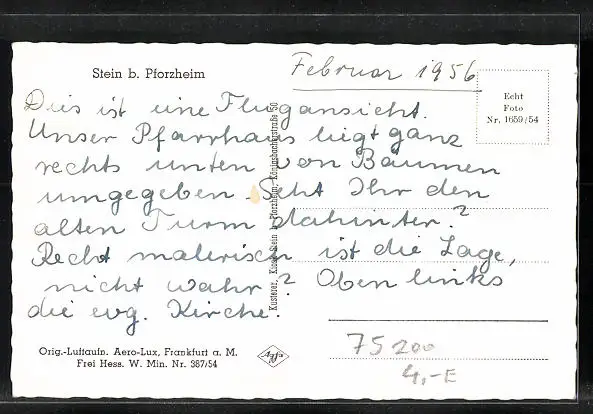 Stein b. Pforzheim
Februar 1956
Echt
Foto
Nr. 1659/54
Dies ist eine Flugansicht.
Unser Pfarrhaus liegt ganz
rechts unten von Bäumen
umgegeben. Seht Ihr den
alten Turm dahinter?
Recht malerisch ist die Lage,
nicht wahr? Oben links
die evg. Kirche.
Kusterer, Kiosk, Stein b. Pforzheim, Königsbacherstraße 50
Orig.-Luftaufn. Aero-Lux, Frankfurt a. M.
Frei Hess. W. Min. Nr. 387/54
Agfa
75200
4,-E